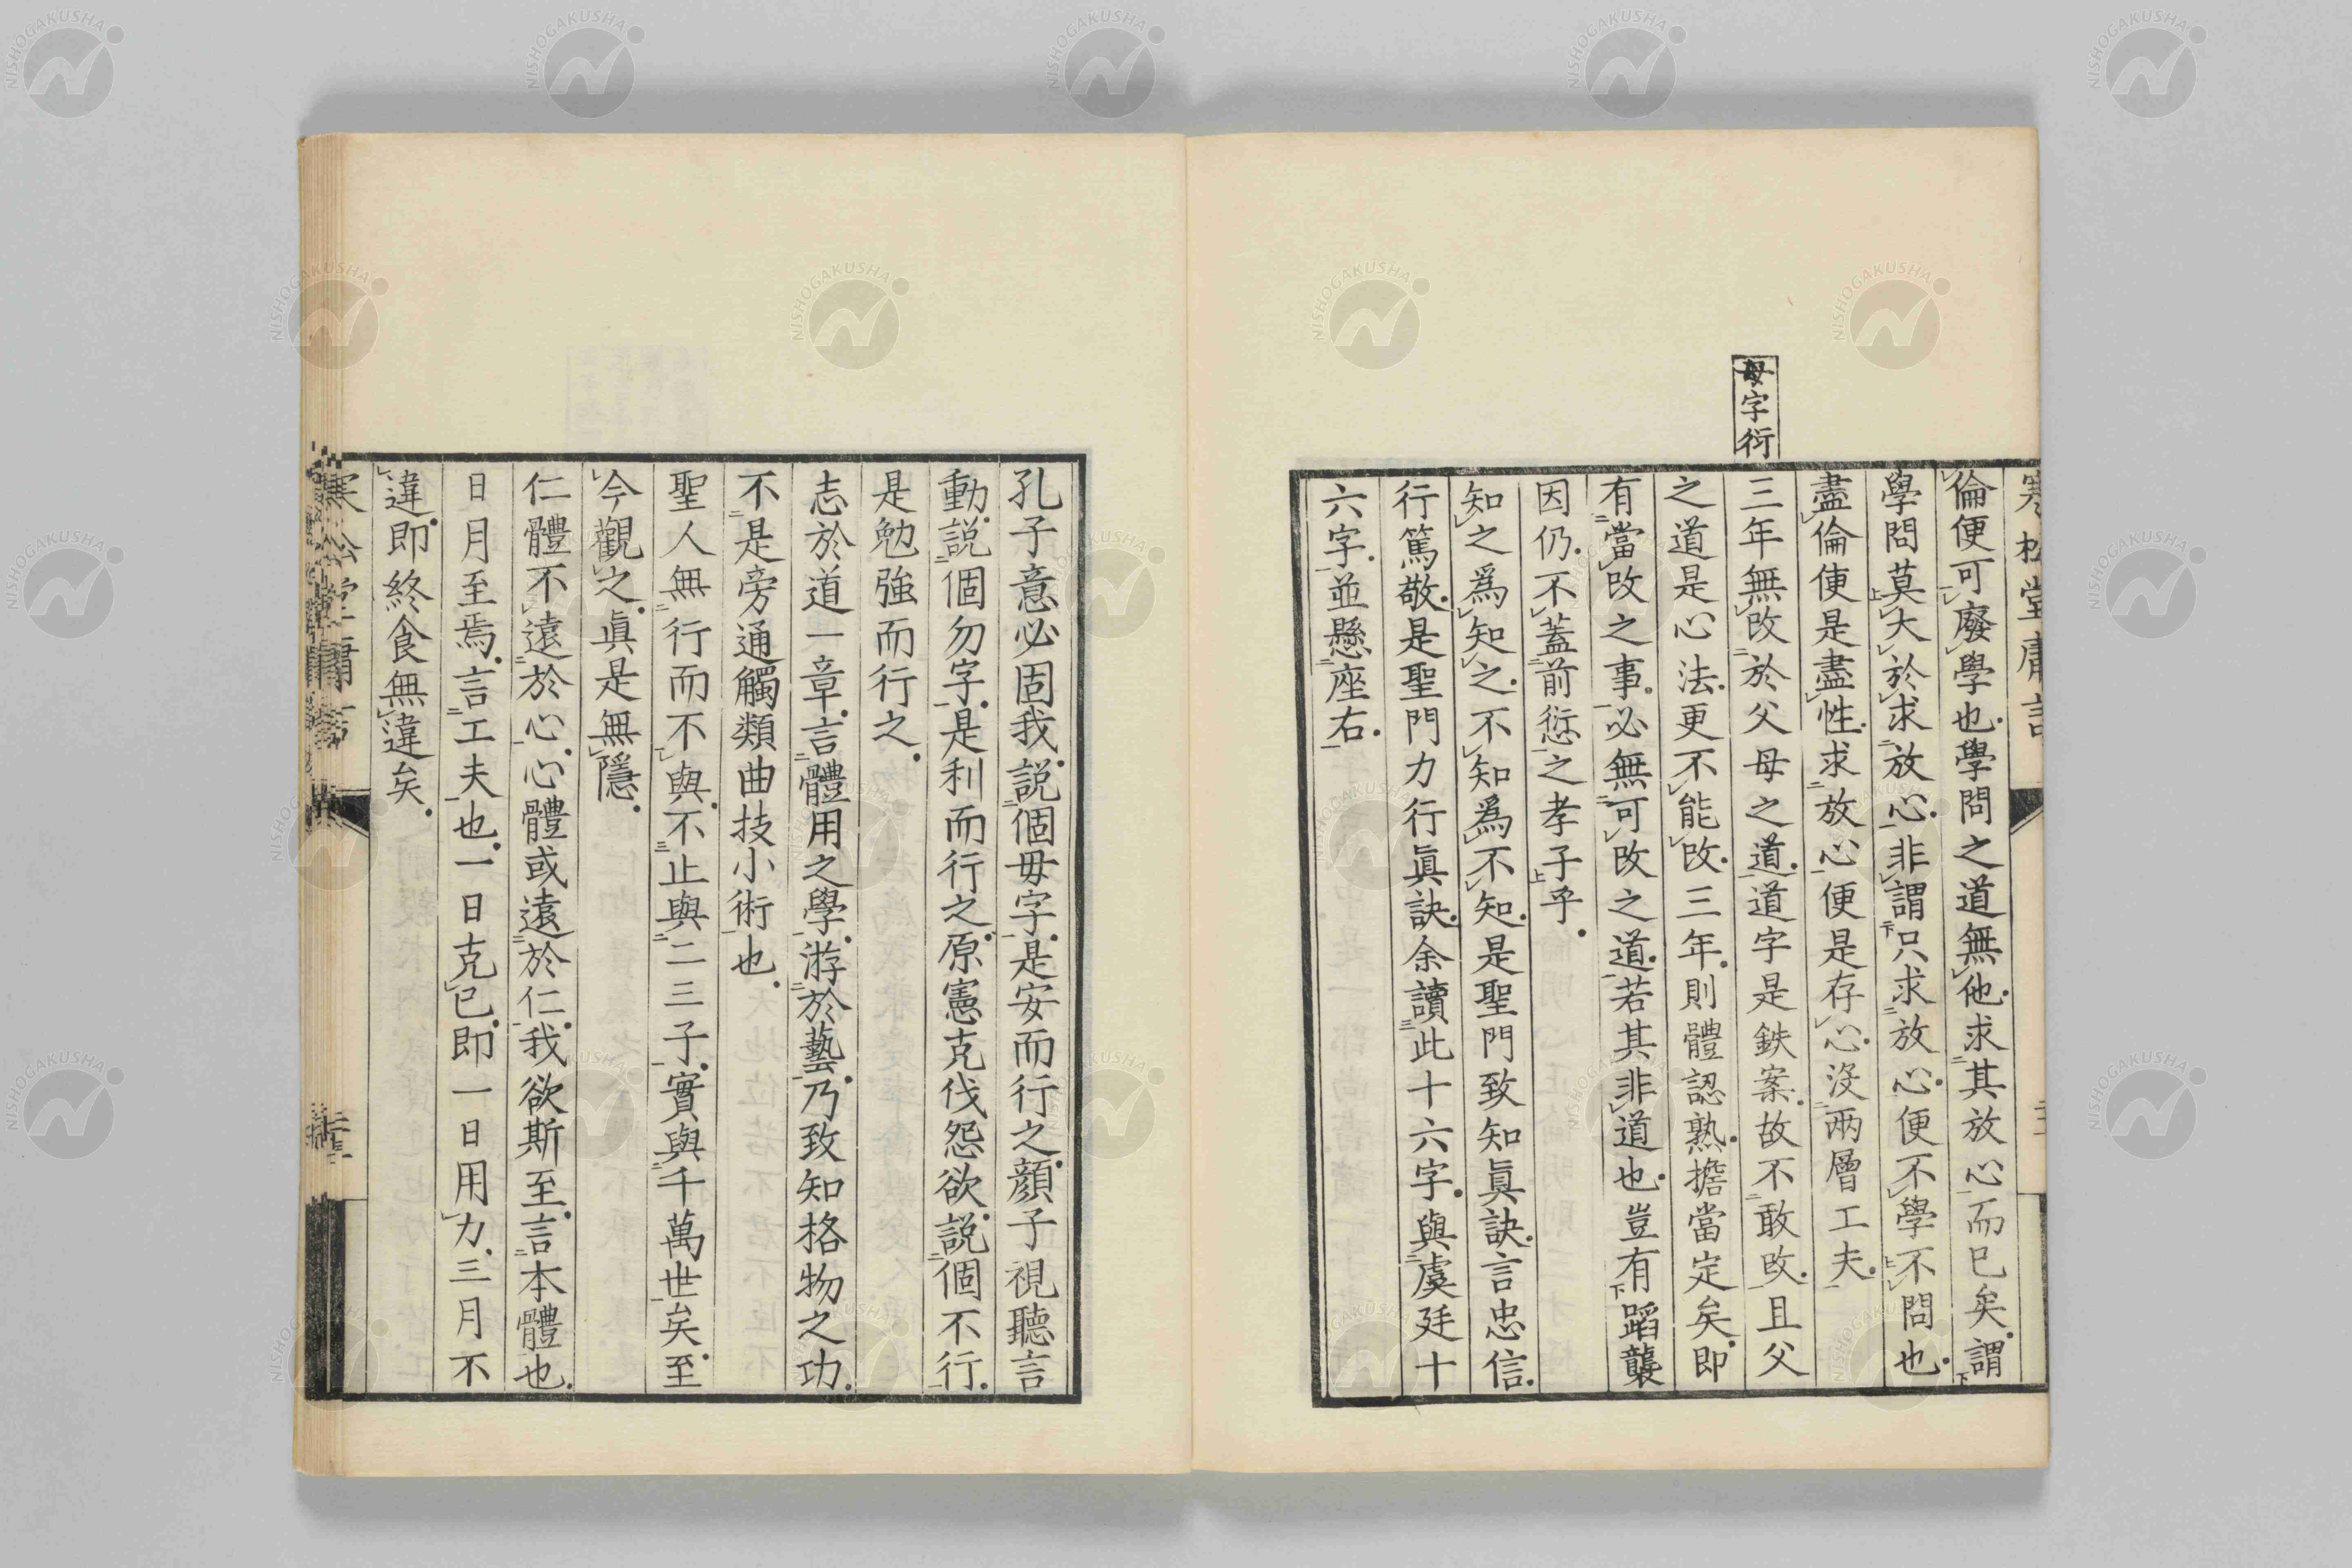 寒松堂庸言
母字衍
倫便可廢學也學問之道無他求其放心而已矣謂
學問莫大於求放心非謂只求放心便不學不問也
盡倫便是盡性求放心便是存心沒兩層工夫
三年無改於父母之道道字是鉄案故不敢改且父
之道是心法更不能改三年則體認熟擔當定矣即
有當改之事必無可改之道若其非道也豈有蹈襲
因仍不蓋前愆之孝子乎
知之爲知之不知爲不知是聖門致知眞訣言忠信
行篤敬是聖門力行眞訣余讀此十六字與虞廷十
六字並懸座右
孔子意必固我説個毋字是安而行之顏子視聽言
動説個勿字是利而行之原憲克伐怨欲説個不行
是勉強而行之
志於道一章言體用之學游於藝乃致知格物之功
不是旁通觸類曲技小術也
聖人無行而不與不止與二三子實與千萬世矣至
今觀之眞是無隱
仁體不遠於心心體或遠於仁我欲斯至言本體也
日月至焉言工夫也一日克已即一日用力三月不
違即終食無違矣
寒松堂庸言
NISHOGAKUSHA